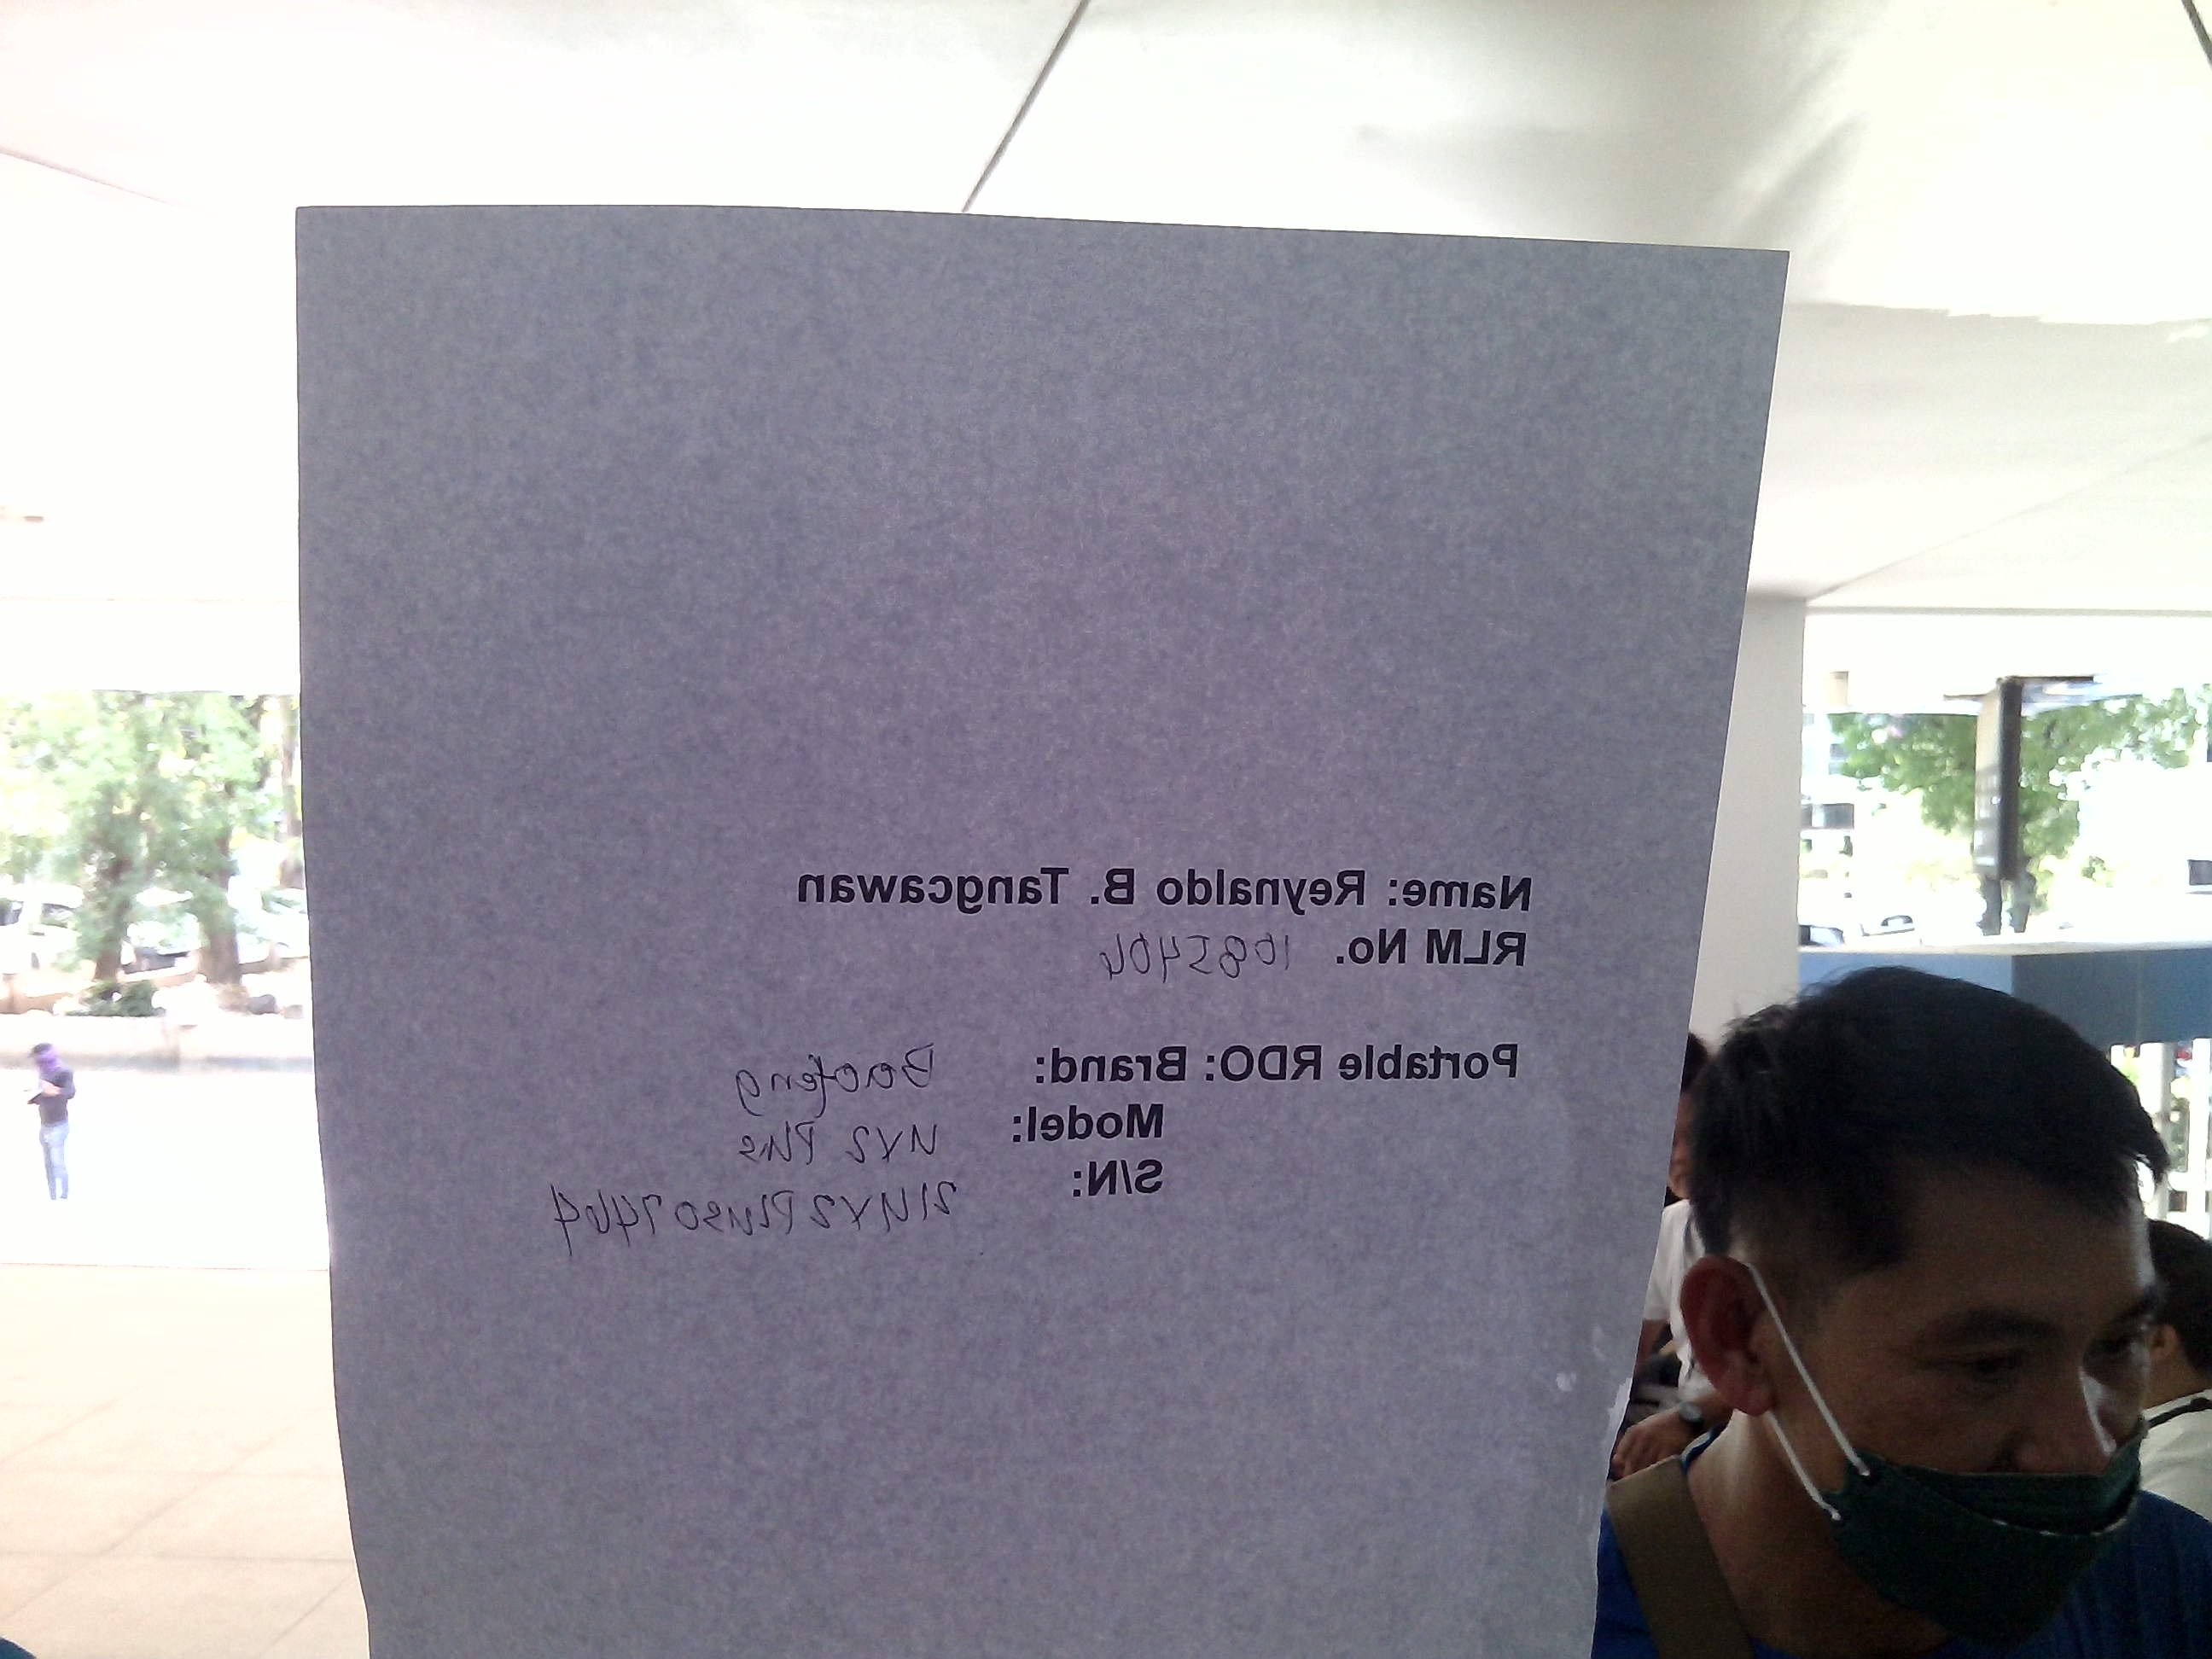 Name: Reynaldo B. Tangcawan
RLM No. 1085406
Portable RDO: Brand: Baofeng
Model: UV2 Plus
S/N: 21UV2Plus07464